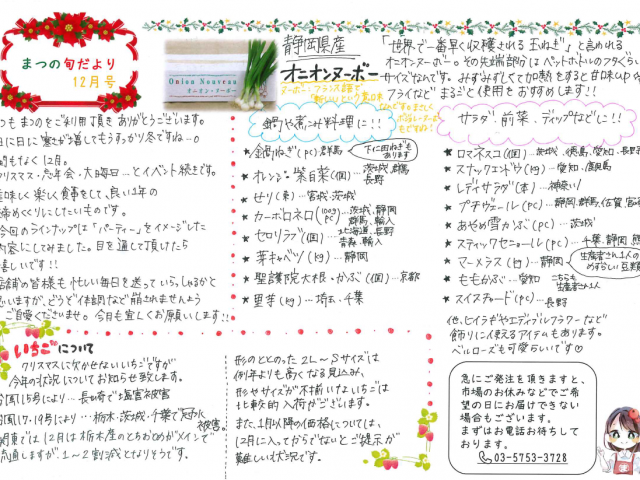 まつの旬だより
12月号
Onion Nouveau
オニオン・ヌーボー
静岡県産
オニオンヌーボー
ヌーボー：フランス語で
「新しい」という意味
「世界で一番早く収穫される玉ねぎ」と言われる
オニオンヌーボー。その先端部分はペットボトルのフタぐらい
サイズなんです。みずみずしくて加熱をすると甘味UP
フライなど まるごと使用をおすすめします!!
つもまつのをご利用頂きありがとうございます。
日に日に寒さが増してもうすっかり冬ですね
間もなく12月。
クリスマス・忘年会・大晦日…とイベント続きです。
美味しく楽しく食事をして、良い1年の
締めくくりにしたいものです。
今回のラインナップは「パーティー」をイメージした
内容にしてみました。目を通して頂けたら
嬉しいです!!
店舗の皆様も忙しい毎日を送っていらっしゃると
思いますが、どうぞ体調など崩されませんよう
ご自愛くださいませ。今月も宜しくお願いします!!
鍋や煮込み料理に!!
★ 金時ねぎ(PC) 群馬
下仁田ねぎも
あります
★ オレンジ白菜(個)…茨城,群馬
長野
★ せり(束)…宮城、茨城
★ カーボロネロ(100g PC)…茨城、静岡
群馬、輸入
★ セロリラブ(個)…北海道、長野
青森、輸入
★ 芽キャベツ(kg)…静岡
★ 聖護院大根・かぶ(個)…京都
★ 里芋(kg)…埼玉・千葉
サラダ、前菜、ディップなどに!!
★ ロマネスコ(個)…茨城、徳島、愛知、長野
★ スナックエンドウ(kg)…愛知、鹿児島
★ レディサラダ(本)…神奈川
★ プチヴェール(PC)…静岡,群馬,佐賀,宮崎
★ あやめ雪かぶ(PC)…茨城
★ スティックセニョール(PC)…千葉、静岡
★ マーメラス(kg)…静岡
生産者さん1人の
めずらしい豆類
★ ももかぶ…愛知
こちらも
生産者さん1人
★ スイスチャード(PC)…長野
他、ヒイラギやエディブルフラワーなど
飾りに使えるアイテムもあります。
ベルローズも可愛らしいです♡
いちごについて
クリスマスに欠かせないいちごですが
今年の状況についてお知らせ致します。
台風15号から…長崎で塩害被害
台風17・19号により…栃木、茨城、千葉で冠水
被害。
関東では12月は栃木産のとちおとめがメインで
流通しますが、1〜2割減となりそうです。
形のととのった2L〜Sサイズは
例年よりも高くなる見込み。
形やサイズが不揃いないちごは
比較的入荷がございます。
また、1月以降の価格については、
12月に入ってからでないとご提示が
難しい状況です。
急にご発注を頂きますと、
市場のお休みなどでご希
望の日にお届けできない
場合もございます。
まずはお電話お待ちして
おります。
03-5753-3728